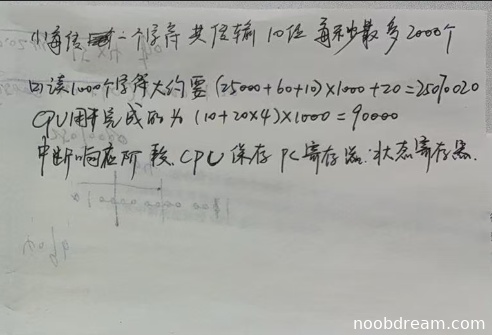 (1)每传一个字符共传输10位 每秒最多2000个
(2)读1000个字符大约要(25000+60+10)×1000+20=25070020
CPU用于完成的为(10+20×4)×1000=90000
中断响应阶段,CPU保存PC寄存器,状态寄存器.
noobdream.com